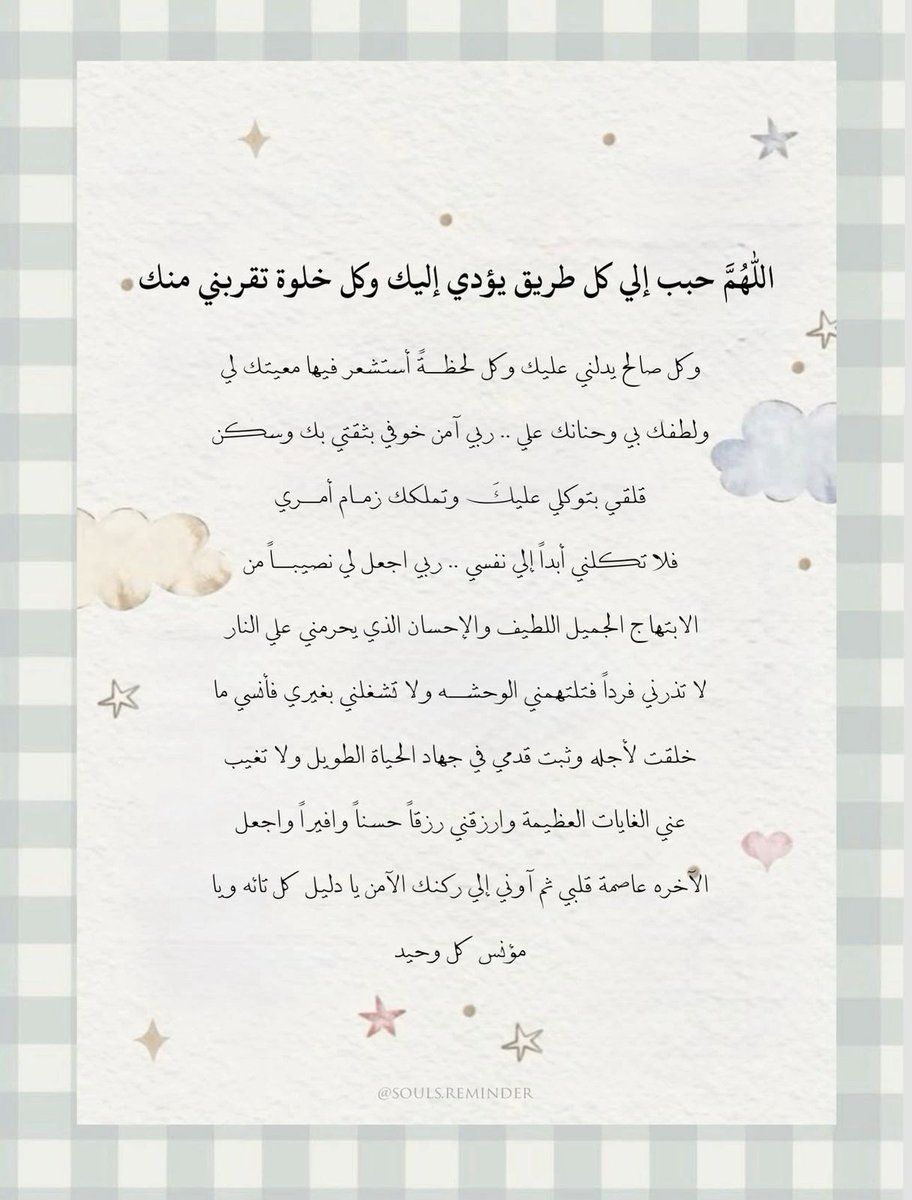 اللّٰهُمَّ حبب إلي كل طريق يؤدي إليك وكل خلوة تقربني منك
وكل صالح يدلني عليك وكل لحظـــةً أستشعر فيها معيتك لي
ولطفك بي وحنانك علي .. ربي آمن خوفي بثقتي بك وسـكـن
قلقي بتوكلي عليكَ وتملكك زمـام أمــري
فلا تـكلني أبداً إلي نفسي .. ربي اجعل لي نصيبـــاً من
الابتهاج الجميل اللطيف والإحسان الذي يحرمني علي النار
لا تذرني فرداً فتلتهمني الوحشـــه ولا تشغلني بغيري فأنسي ما
خلقت لأجله وثبت قدمي في جهاد الحياة الطويل ولا تغيب
عني الغايات العظيمة وارزقني رزقاً حسناً وافيراً واجعل
الآخره عاصمة قلبي ثم آوني إلي ركنك الآمن يا دليل كل تائه ويا
مؤنس كل وحيد
@SOULS.REMINDER